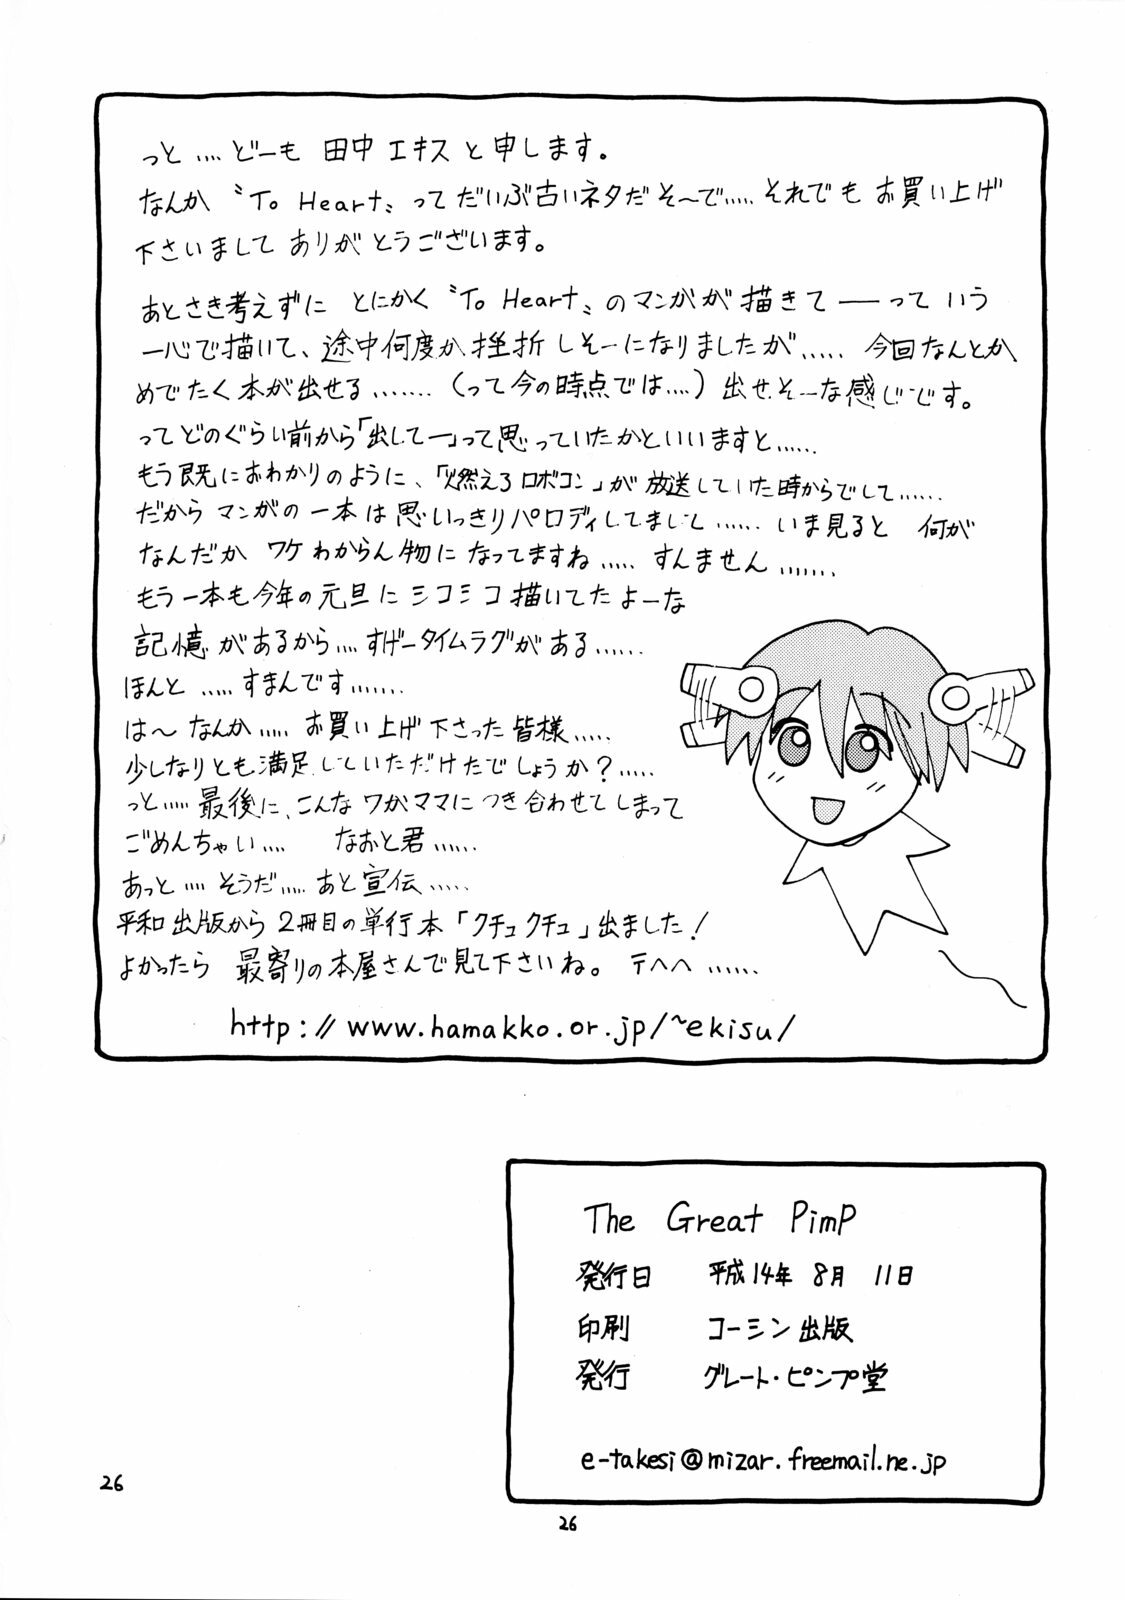 っと....どーも 田中エキスと申します。
なんか〝To Heart〟ってだいぶ古いネタだそ〜で.....それでもお買い上げ
下さいまして ありがとうございます。
あとさき考えずに とにかく〝To Heart〟のマンガが描きてーーっていう
一心で描いて、途中何度か挫折しそーになりましたが..... 今回なんとか
めでたく本が出せる.......(って今の時点では....)出せそーな感じです。
ってどのぐらい前から「出してー」って思っていたかといいますと......
もう既におわかりのように、「燃えろロボコン」が放送していた時からでして......
だからマンガの一本は思いっきりパロディしてまして...... いま見ると 何が
なんだか ワケわからん物になってますね..... すんません.......
もう一本も今年の元旦にシコシコ描いてたよーな
記憶があるから....すげータイムラグがある......
ほんと.....すまんです.......
は〜 なんか.....お買い上げ下さった皆様.....
少しなりとも満足していただけたでしょうか?.....
っと.....最後に、こんなワがママにつき合わせてしまって
ごめんちゃい.... なおと君......
あっと....そうだ.....あと宣伝.....
平和出版から2冊目の単行本「クチュクチュ」出ました!
よかったら 最寄りの本屋さんで見て下さいね。テヘヘ......
http://www.hamakko.or.jp/~ekisu/
The Great Pimp
発行日 平成14年 8月 11日
印刷 コーシン出版
発行 グレート・ピンプ堂
e-takesi@mizar.freemail.ne.jp
26
26